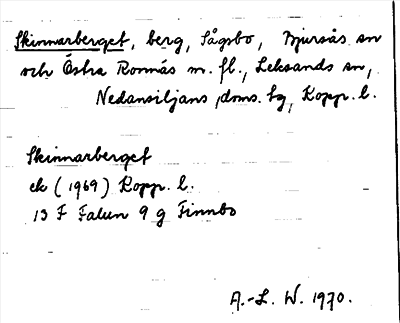 Skinnarberget, berg, Sågsbo, Bjursås sn
och Östra Rönnäs m. fl., Leksands sn,
Nedansiljans doms. tg, Kopp. l.
Skinnarberget
ek (1969) Kopp. l.
13 F Falun 9 g Finnbo
A.-L. W. 1970.